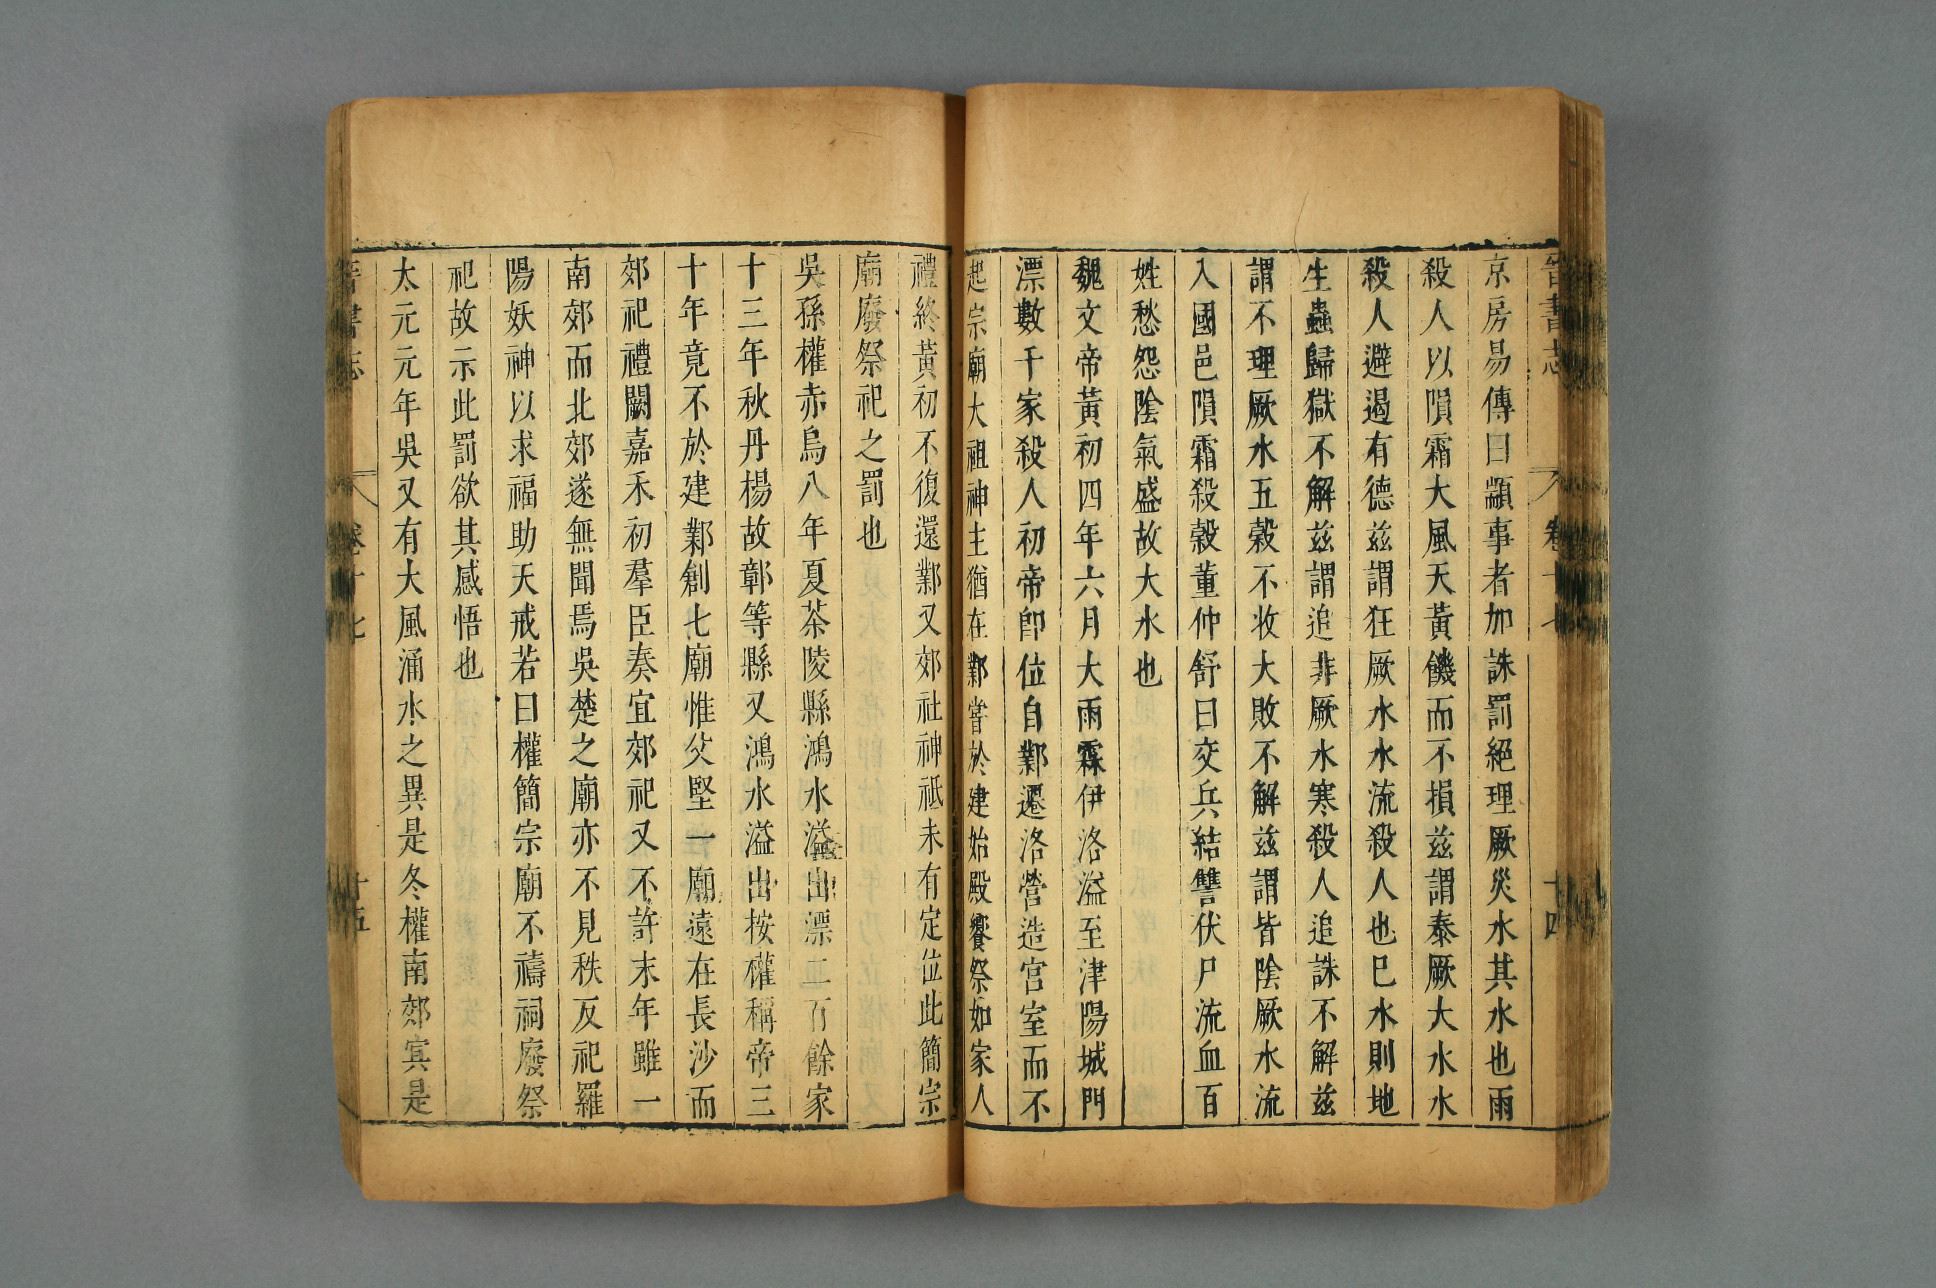 晉書志 卷十七 十四
京房易傳曰顓事者加誅罰絕理厥災水其水也雨
殺人以隕霜大風天黃饑而不損茲謂泰厥大水水
殺人避遏有德茲謂狂厥水水流殺人也已水則地
生蟲歸獄不解茲謂追非厥水寒殺人追誅不解茲
謂不理厥水五穀不收大敗不解茲謂皆陰厥水流
入國邑隕霜殺穀董仲舒曰交兵結讐伏尸流血百
姓愁怨陰氣盛故大水也
魏文帝黃初四年六月大雨霖伊洛溢至津陽城門
漂數千家殺人初帝卽位自鄴遷洛營造宮室而不
起宗廟大祖神主猶在鄴嘗於建始殿饗祭如家人
禮終黃初不復還鄴又郊社神祗未有定位此簡宗
廟廢祭祀之罰也
吳孫權赤烏八年夏茶陵縣鴻水溢出漂二百餘家
十三年秋丹楊故鄣等縣又鴻水溢出按權稱帝三
十年竟不於建鄴創七廟惟父堅一廟遠在長沙而
郊祀禮闕嘉禾初羣臣奏宜郊祀又不許末年雖一
南郊而北郊遂無聞焉吳楚之廟亦不見秩反祀羅
陽妖神以求福助天戒若曰權簡宗廟不禱祠廢祭
祀故示此罰欲其感悟也
太元元年吳又有大風涌水之異是冬權南郊宜是
晉書志 卷十七 十五